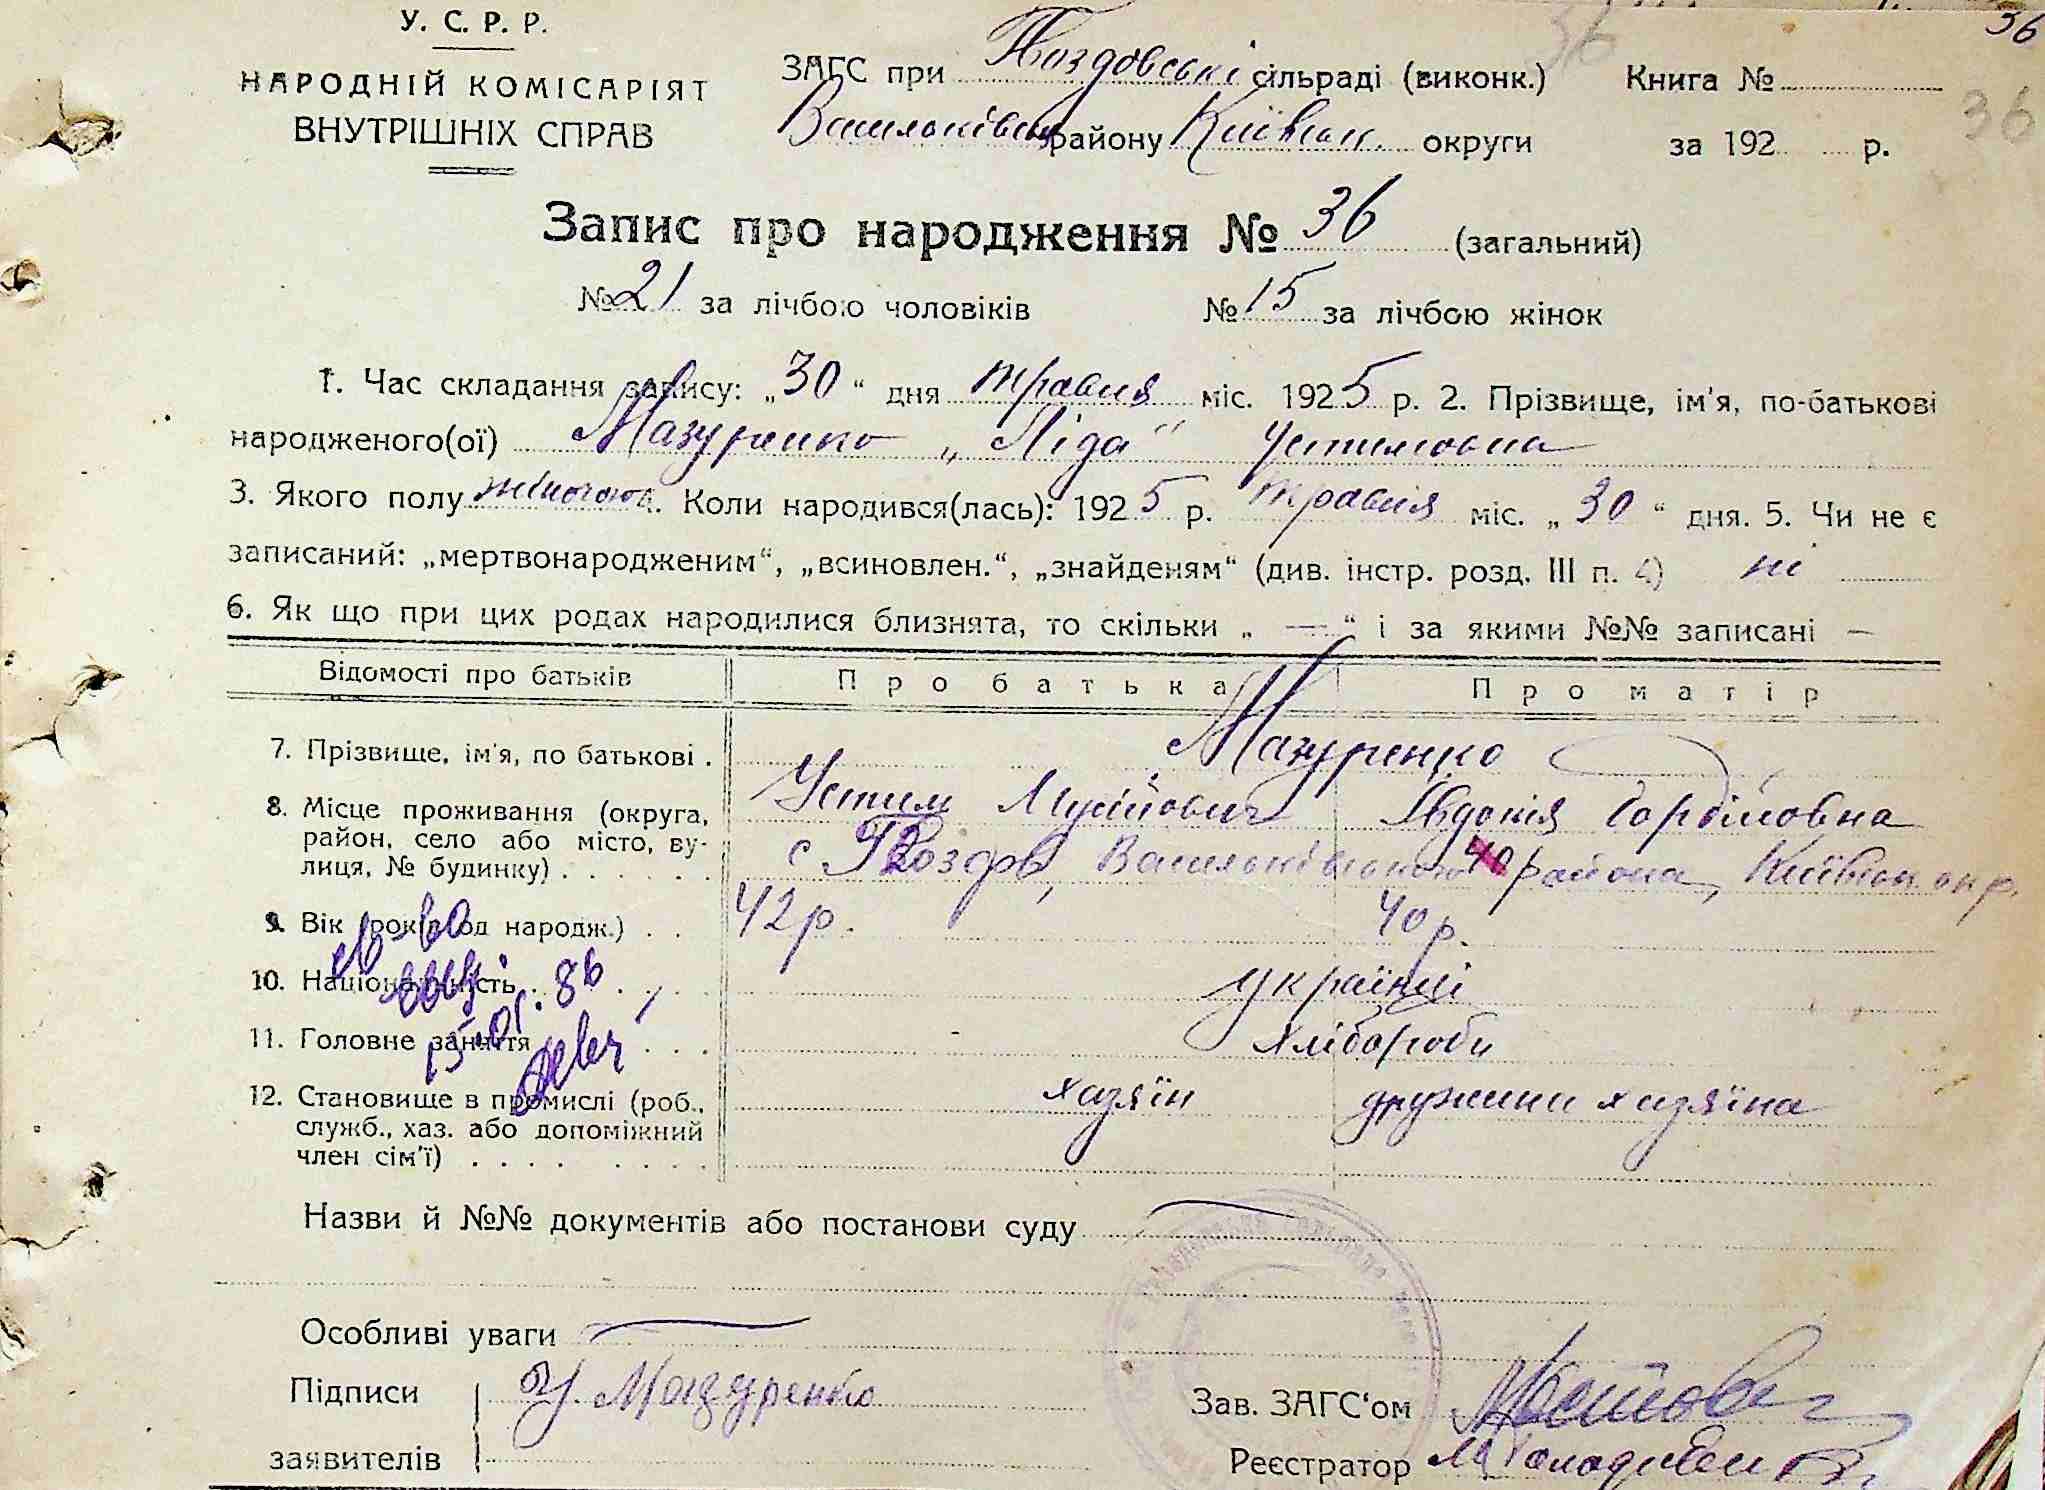 У. С. Р. Р.
НАРОДНІЙ КОМІСАРІЯТ
ВНУТРІШНІХ СПРАВ
36
36
ЗАГС при Гвоздовські сільраді (виконк.) Книга №
Васильківськ району Київськ. округи за 192 р.
36
Запис про народження № 36 (загальний)
№ 21 за лічбою чоловіків № 15 за лічбою жінок
1. Час складання запису: „30“ дня травня міс. 1925 р. 2. Прізвище, ім'я, по-батькові
народженого(ої) Мазуренко „Ліда“ Устимовна
3. Якого полу жіночого 4. Коли народився(лась): 1925 р. травня міс. „30“ дня. 5. Чи не є
записаний: „мертвонародженим“, „всиновлен.“, „знайденям“ (див. інстр. розд. III п. 4) ні
6. Як що при цих родах народилися близнята, то скільки „ — “ і за якими №№ записані —
Відомості про батьків Про батька Про матір
7. Прізвище, ім'я, по батькові . Мазуренко
Устим Мусійович Явдокія Гордіїовна
8. Місце проживання (округа,
район, село або місто, ву-
лиця, № будинку) . . . . . . с Гвоздов, Васильківського района, Київськ окр.
9. Вік (років од народж.) . . 42 р. 40 р.
10. Національність . . . . українці
11. Головне заняття . . . хлібороби
12. Становище в промислі (роб.,
служб., хаз. або допоміжний
член сім'ї) . . . . . . . . . хазяїн дружина хазяїна
15.01.86
Назви й №№ документів або постанови суду —
Особливі уваги —
Підписи У. Мазуренко
заявителів
Зав. ЗАГС'ом
Реєстратор